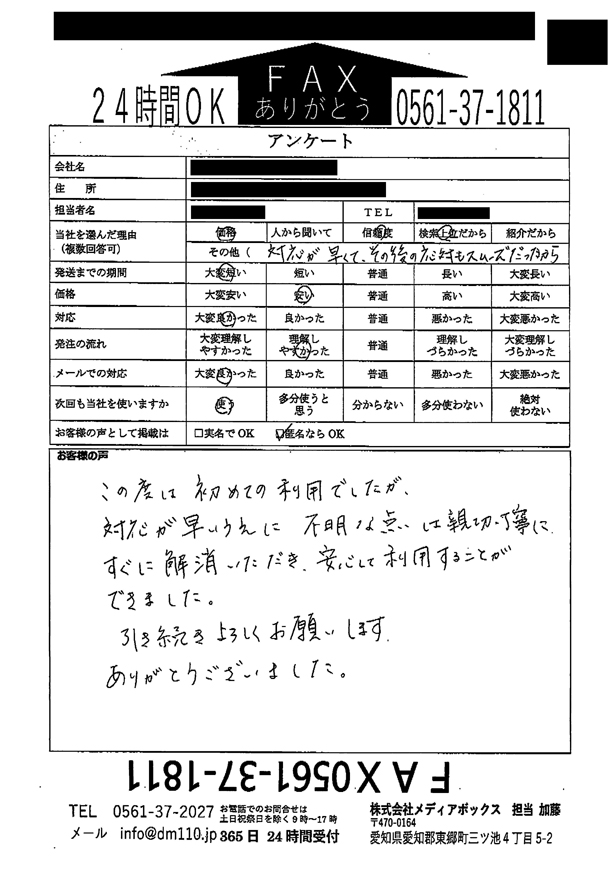 FAX
ありがとう
24時間OK
0561-37-1811
アンケート
会社名
住 所
担当者名 TEL
当社を選んだ理由
(複数回答可)
価格 人から聞いて 信頼度 検索上位だから 紹介だから
その他( 対応が早くて、その後の応対もスムーズだったから
発送までの期間 大変短い 短い 普通 長い 大変長い
価格 大変安い 安い 普通 高い 大変高い
対応 大変良かった 良かった 普通 悪かった 大変悪かった
発注の流れ 大変理解しやすかった 理解しやすかった 普通 理解しづらかった 大変理解しづらかった
メールでの対応 大変良かった 良かった 普通 悪かった 大変悪かった
次回も当社を使いますか 使う 多分使うと思う 分からない 多分使わない 絶対使わない
お客様の声として掲載は □実名でOK ☑匿名ならOK
お客様の声
この度は初めての利用でしたが、
対応が早いうえに 不明な点いは親切丁寧に
すぐに解消いただき、安心して利用することが
できました。
引き続きよろしくお願いします。
ありがとうございました。
FAX0561-37-1811
TEL 0561-37-2027 お電話でのお問合せは
土日祝祭日を除く9時～17時
メール info@dm110.jp 365日 24時間受付
株式会社メディアボックス 担当 加藤
〒470-0164
愛知県愛知郡東郷町三ツ池4丁目5-2